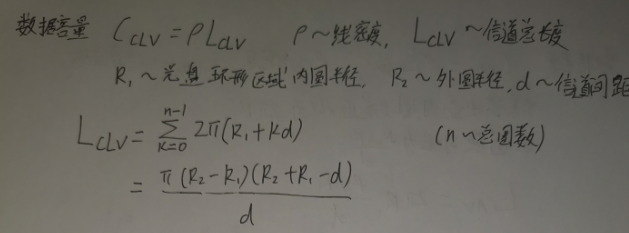 数据容量 C_CLV = ρL_CLV ρ~线密度, L_CLV ~信道总长度
R₁~光盘环形区域内圆半径, R₂~外圆半径, d~信道间距
L_CLV = \sum_{k=0}^{n-1} 2π(R₁+kd) (n~总圈数)
= \frac{π(R₂-R₁)(R₂+R₁-d)}{d}